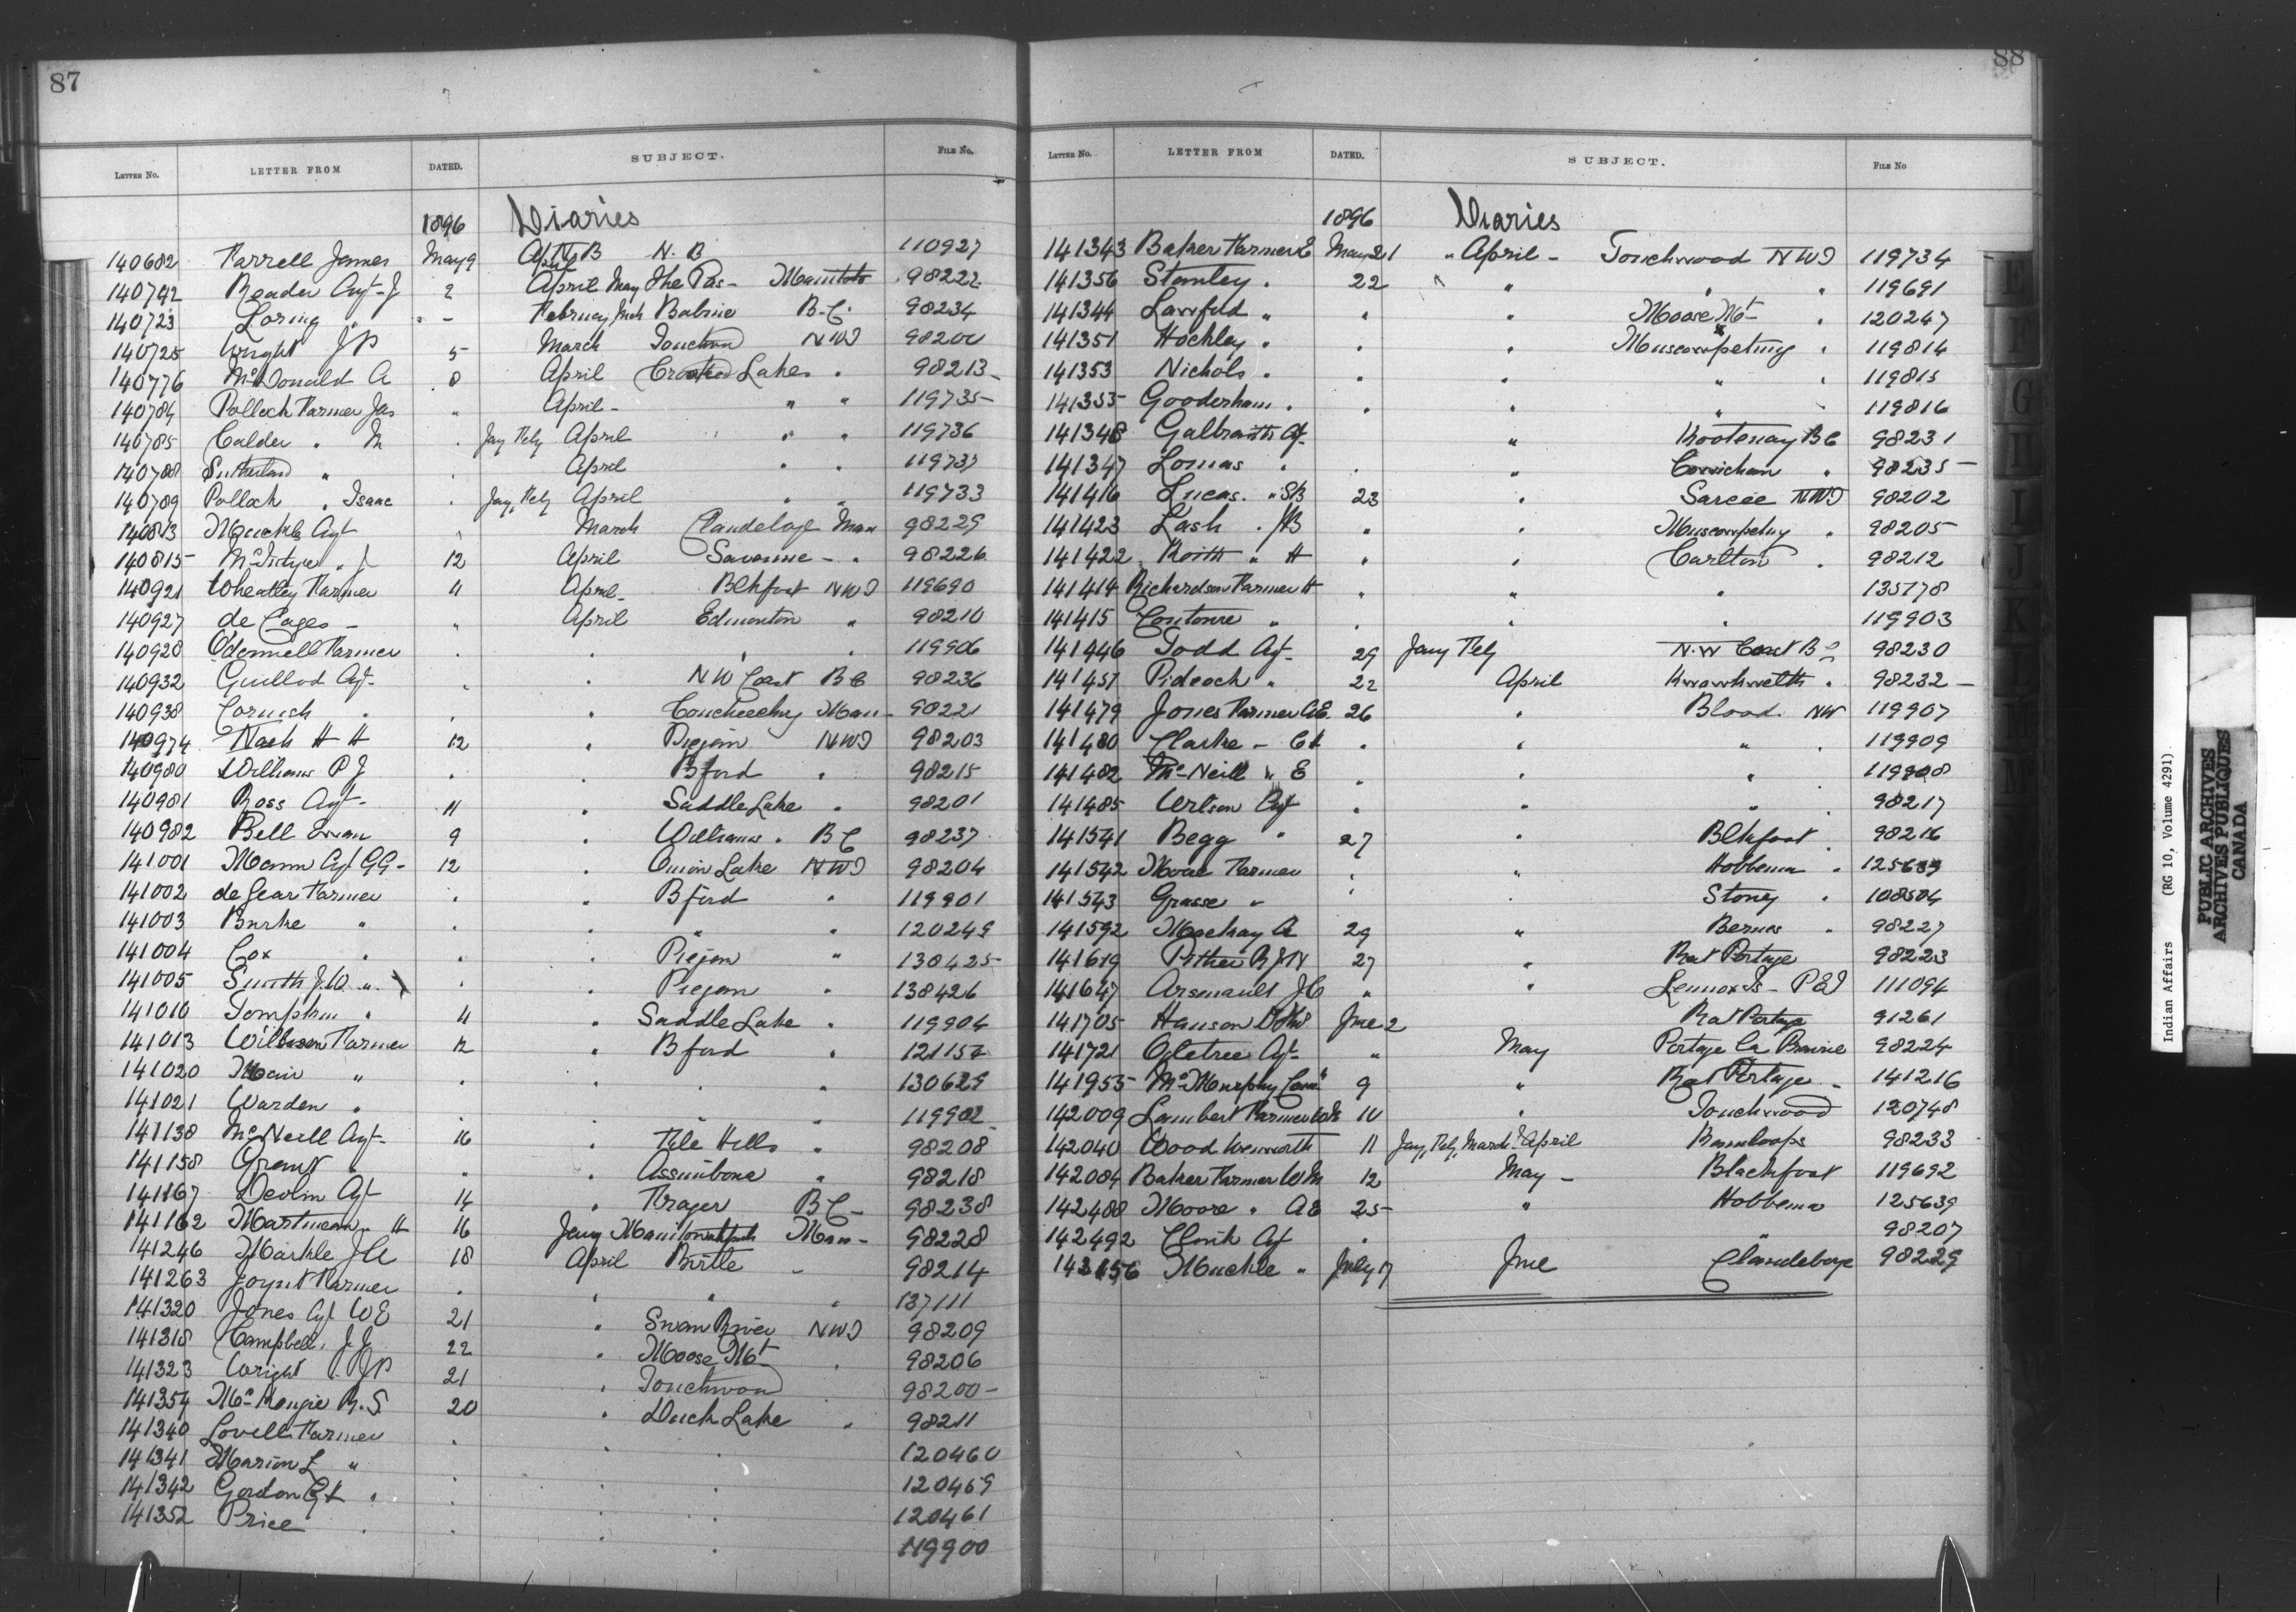 87
LETTER NO. LETTER FROM DATED. SUBJECT. FILE NO.
1896 Diaries
140682 Farrell James May 9 April N. B 110927
140742 Reader Agt J 2 April May The Pas - Manitoba 98222
140723 Loring " - February Mch Babine B.C. 98234
140725 Wright J P 5 March Touchwood NWT 98200
140776 McDonald A 8 April Crooked Lakes " 98213
140784 Pollock Farmer Jas " April - " " 119735
140785 Calder " M " Jany Feby April " " 119736
140788 Sutherland " " April " " 119737
140789 Pollock " Isaac " Jany, Feby April " " 119733
140813 Muckle Agt " March Clandeboye Man 98229
140815 McIntyre " J 12 April Savanne - " 98226
140921 Wheatley Farmer 11 April - Blkfoot NWT 119690
140927 de Cazes - " April Edmonton " 98210
140928 O'donnell Farmer " " " " 119906
140932 Guillod Agt - " " N W Coast B C 98236
140938 Cornish " " " Couchiching Man - 98221
140974 Nash H H 12 " Piegan NWT 98203
140980 Williams P J " " Bford " 98215
140981 Ross Agt - 11 " Saddle Lake " 98201
140982 Bell Ewan 9 " Williams " B C 98237
141001 Mann Agt G G - 12 " Onion Lake NWT 98204
141002 de Gear Farmer " " Bford " 119901
141003 Burke " " " " " 120249
141004 Cox " " " Piegan " 130425
141005 Smith J. W. " " " Piegan " 138426
141010 Tompkins " 11 " Saddle Lake " 119904
141013 Willson Farmer 12 " Bford " 121152
141020 Mair " " " " " 130629
141021 Warden " " " " " 119902
141138 McNeill Agt - 16 " File Hills " 98208
141158 Grant " " " Assiniboine " 98218
141167 Devlin Agt 14 " Fraser B C - 98238
141162 Martineau " H 16 Jany Manitowahpah Man - 98228
141246 Markle J A 18 April Birtle - 98214
141263 Joynt Farmer " " " " 137111
141320 Jones Agt W E 21 " Swan River NWT 98209
141318 Campbell, J. J. 22 " Moose Mt " 98206
141323 Wright J P 21 " Touchwood 98200 -
141354 McKenzie R. S 20 " Duck Lake " 98211
141340 Lovell Farmer " " " 120460
141341 Marion L " " " 120469
141342 Gordon " " " " 120461
141352 Price " " " " 119900
88
LETTER NO. LETTER FROM DATED. SUBJECT. FILE NO
1896 Diaries
141343 Baker Farmer E May 21 " April - Touchwood NWT 119734
141356 Stanley " 22 " " " 119691
141344 Lawford " " " Moose Mt - " 120247
141351 Hockley " " " Muscowpetung " 119814
141353 Nichols " " " " " 119815
141355 Gooderham " " " " " 119816
141348 Galbraith Agt - " Kootenay B C 98231
141347 Lomas " " " Cowichan " 98235 -
141416 Lucas. " S B 23 " Sarcee NWT 98202
141423 Lash " J B " " Muscowpetung " 98205
141422 Keith " H " " Carlton " 98212
141414 Richardson Farmer H " " " 135178
141415 Couture " " " " 119903
141446 Todd Agt - 29 Jany Feby N. W Coast B C 98230
141451 Pidcock " 22 April Kwawkwelth " 98232 -
141479 Jones Farmer A E. 26 " Blood NW 119907
141480 Clarke - C H " " " " 119909
141482 McNeill " E " " " 119908
141485 Wilson Agt " " " " 98217
141541 Begg " 27 " Blkfoot " 98216
141542 Moore Farmer " " Hobbema " 125639
141543 Grasse " " Stoney " 108504
141592 Mackay A 29 " Berens " 98227
141619 Pither R J N 27 " Rat Portage 98223
141647 Arsenault J C " " Lennox Is - P E I 111094
141705 Hanson Jne 2 Rat Portage 91261
141721 Ogletree Agt - " May Portage la Prairie 98224
141955 McMurphy 9 " Rat Portage - 141216
142009 Lambert Farmer 10 " Touchwood 120748
142040 Wood Wenworth 11 Jany, Feby, March & April Kamloops 98233
142084 Baker Farmer W M 12 May - Blackfoot 119692
142488 Moore " A E 25 " Hobbema 125639
142492 Clink Agt " " 98207
143156 Muckle " July 17 Jne Clandeboye 98229
Indian Affairs (RG 10, Volume 4291)
PUBLIC ARCHIVES
ARCHIVES PUBLIQUES
CANADA
E
F
G
H
I
J
K